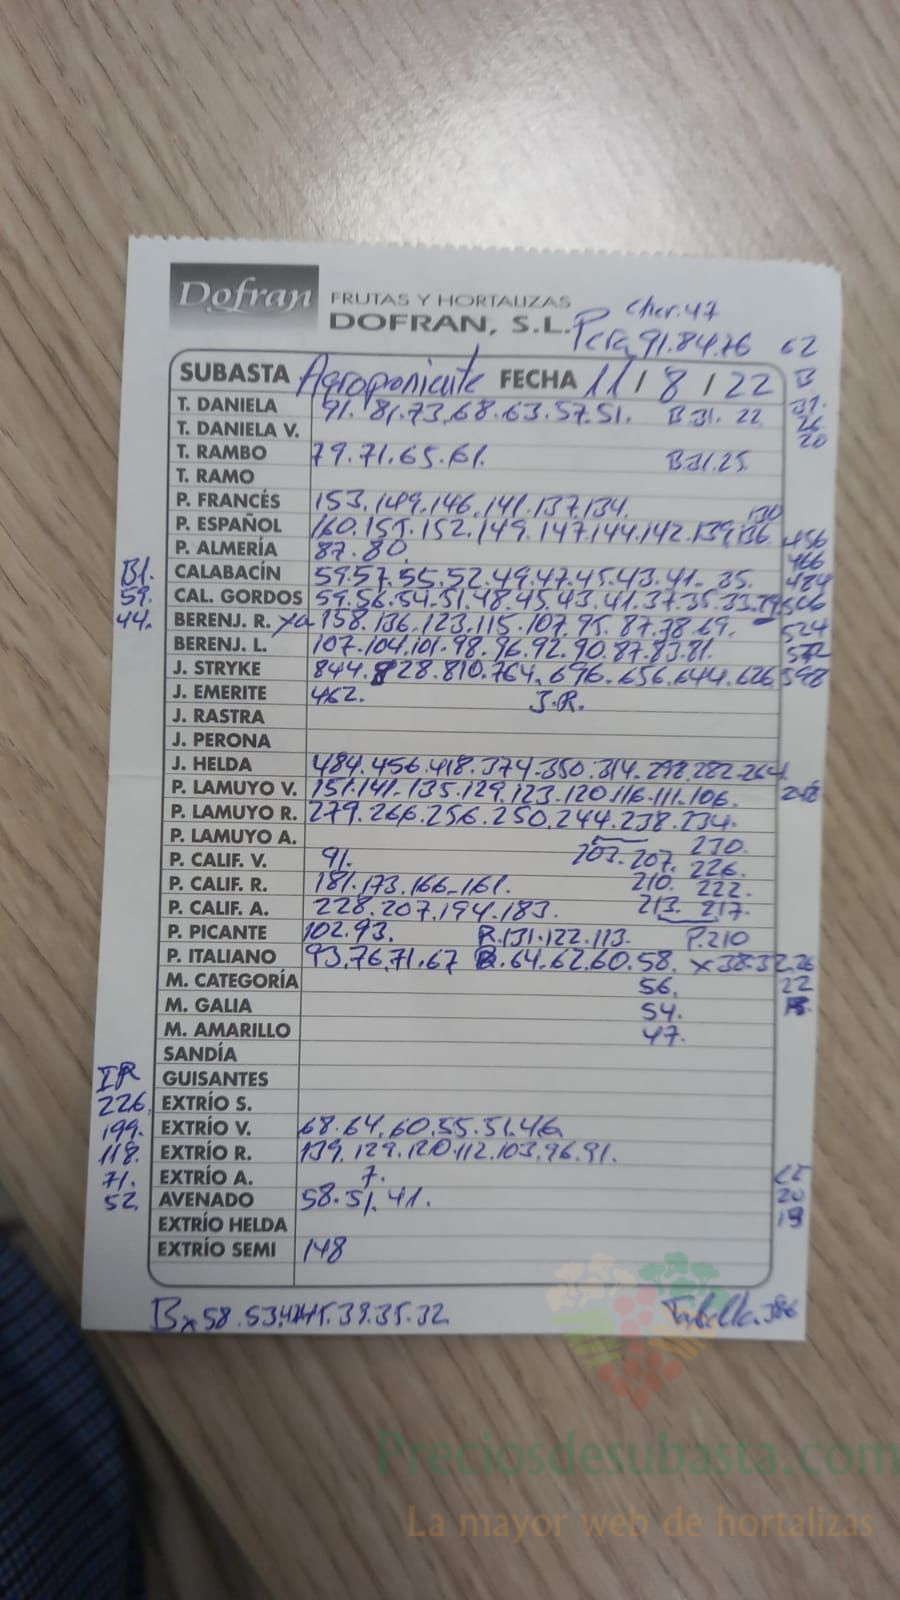 Dofran FRUTAS Y HORTALIZAS
DOFRAN, S.L.
Cher. 47
Pera 91.84.76 62
SUBASTA Agroponiente FECHA 11 / 8 / 22 B
T. DANIELA 91.81.73.68.63.57.51. B.31. 22 31.
26
T. DANIELA V. 20
T. RAMBO 79.71.65.61. B.31.25.
T. RAMO
P. FRANCÉS 153.149.146.141.137.134. 130
P. ESPAÑOL 160.155.152.149.147.144.142.139.136 456
P. ALMERÍA 87.80. 466
B1. CALABACÍN 59.57.55.52.49.47.45.43.41. 35. 484
59. CAL. GORDOS 59.56.54.51.48.45.43.41.37.35.33. 506
44. BERENJ. R. xa 158.136.123.115.107.95.87.78.69. 524
BERENJ. L. 107.104.101.98.96.92.90.87.83.81. 572
J. STRYKE 844.828.810.764.696.656.644.626 598
J. EMERITE 462. J.R.
J. RASTRA
J. PERONA
J. HELDA 484.456.418.374.350.314.298.282.264
P. LAMUYO V. 151.141.135.129.123.120.116.111.106. 248
P. LAMUYO R. 279.266.256.250.244.238.234.
P. LAMUYO A. 230.
P. CALIF. V. 91. 207. 226.
P. CALIF. R. 181.173.166.161. 210. 222.
P. CALIF. A. 228.207.194.183. 213. 217.
P. PICANTE 102.93. R.131.122.113. P.210
P. ITALIANO 93.76.71.67 R.64.62.60.58. x38.32.26
M. CATEGORÍA 56. 22
M. GALIA 54.
M. AMARILLO 47.
SANDÍA
IR GUISANTES
226. EXTRÍO S.
199. EXTRÍO V. 68.64.60.55.51.46
118. EXTRÍO R. 139.129.120.112.103.96.91.
71. EXTRÍO A. 7.
52. AVENADO 58.51.41. 20
EXTRÍO HELDA
EXTRÍO SEMI 148
Bx58.53. 39.35.32
Tabella.386
Preciosdesubasta.com
La mayor web de hortalizas